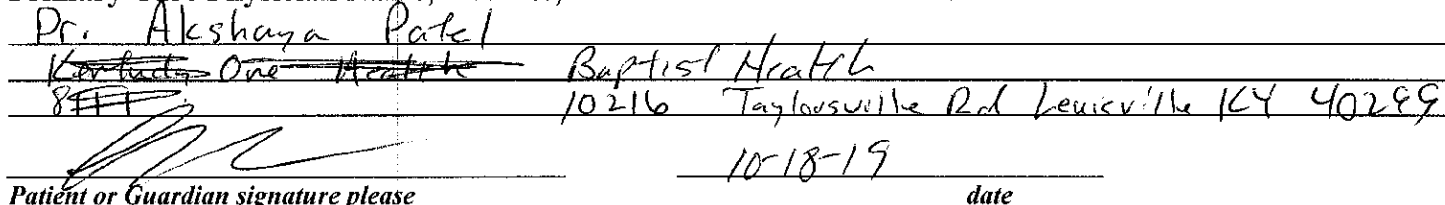 Dr. Akshaya Patel
Kentucky One Health Baptist Health
10216 Taylorsville Rd Louisville KY 40299
10-18-19
Patient or Guardian signature please date